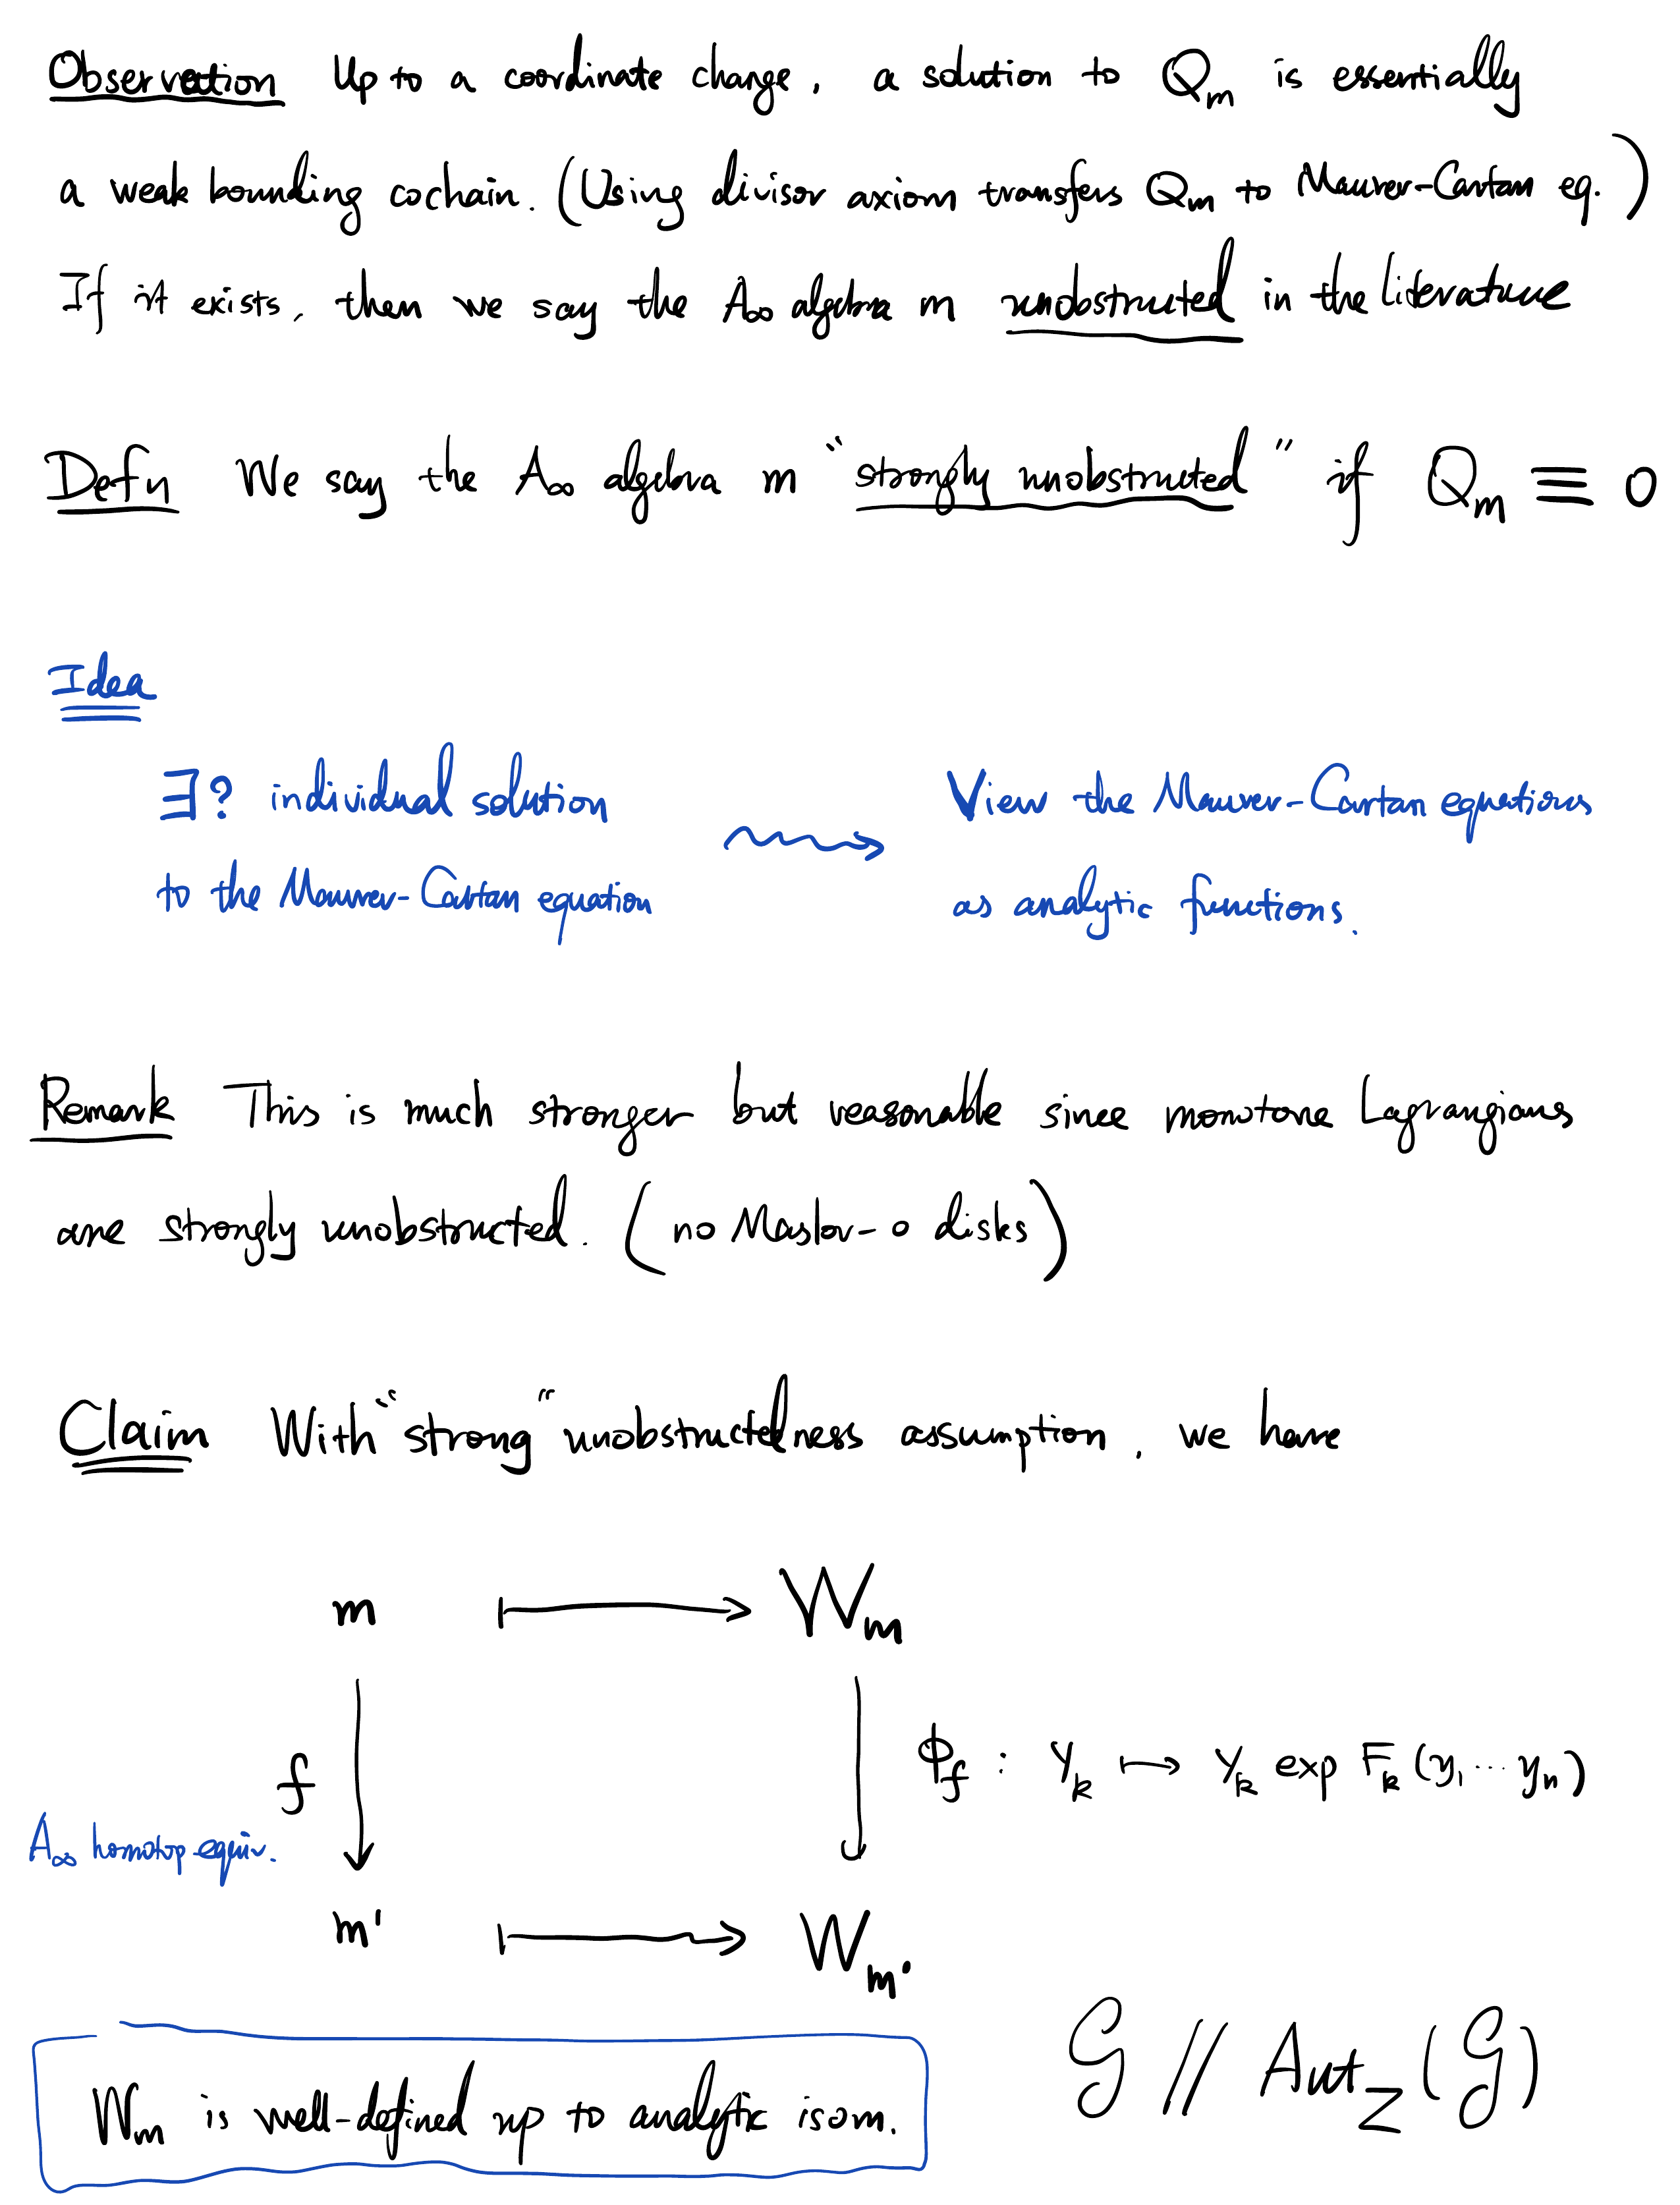 Observation Up to a coordinate change, a solution to Q_m is essentially
a weak bounding cochain. (Using divisor axiom transfers Q_m to Maurer-Cartan eq.)
If it exists, then we say the A_∞ algebra m unobstructed in the literature
Defn We say the A_∞ algebra m "strongly unobstructed" if Q_m ≡ 0
Idea
∃? individual solution
to the Maurer-Cartan equation
View the Maurer-Cartan equations
as analytic functions.
Remark This is much stronger but reasonable since monotone Lagrangians
are strongly unobstructed. (no Maslov-0 disks)
Claim With "strong" unobstructedness assumption, we have
m ↦ W_m
f
ϕ_f : Y_k ↦ Y_k exp F_k (y_1 ... y_n)
A_∞ homotop equiv.
m' ↦ W_m'
G // Aut_Z (G)
W_m is well-defined up to analytic isom.